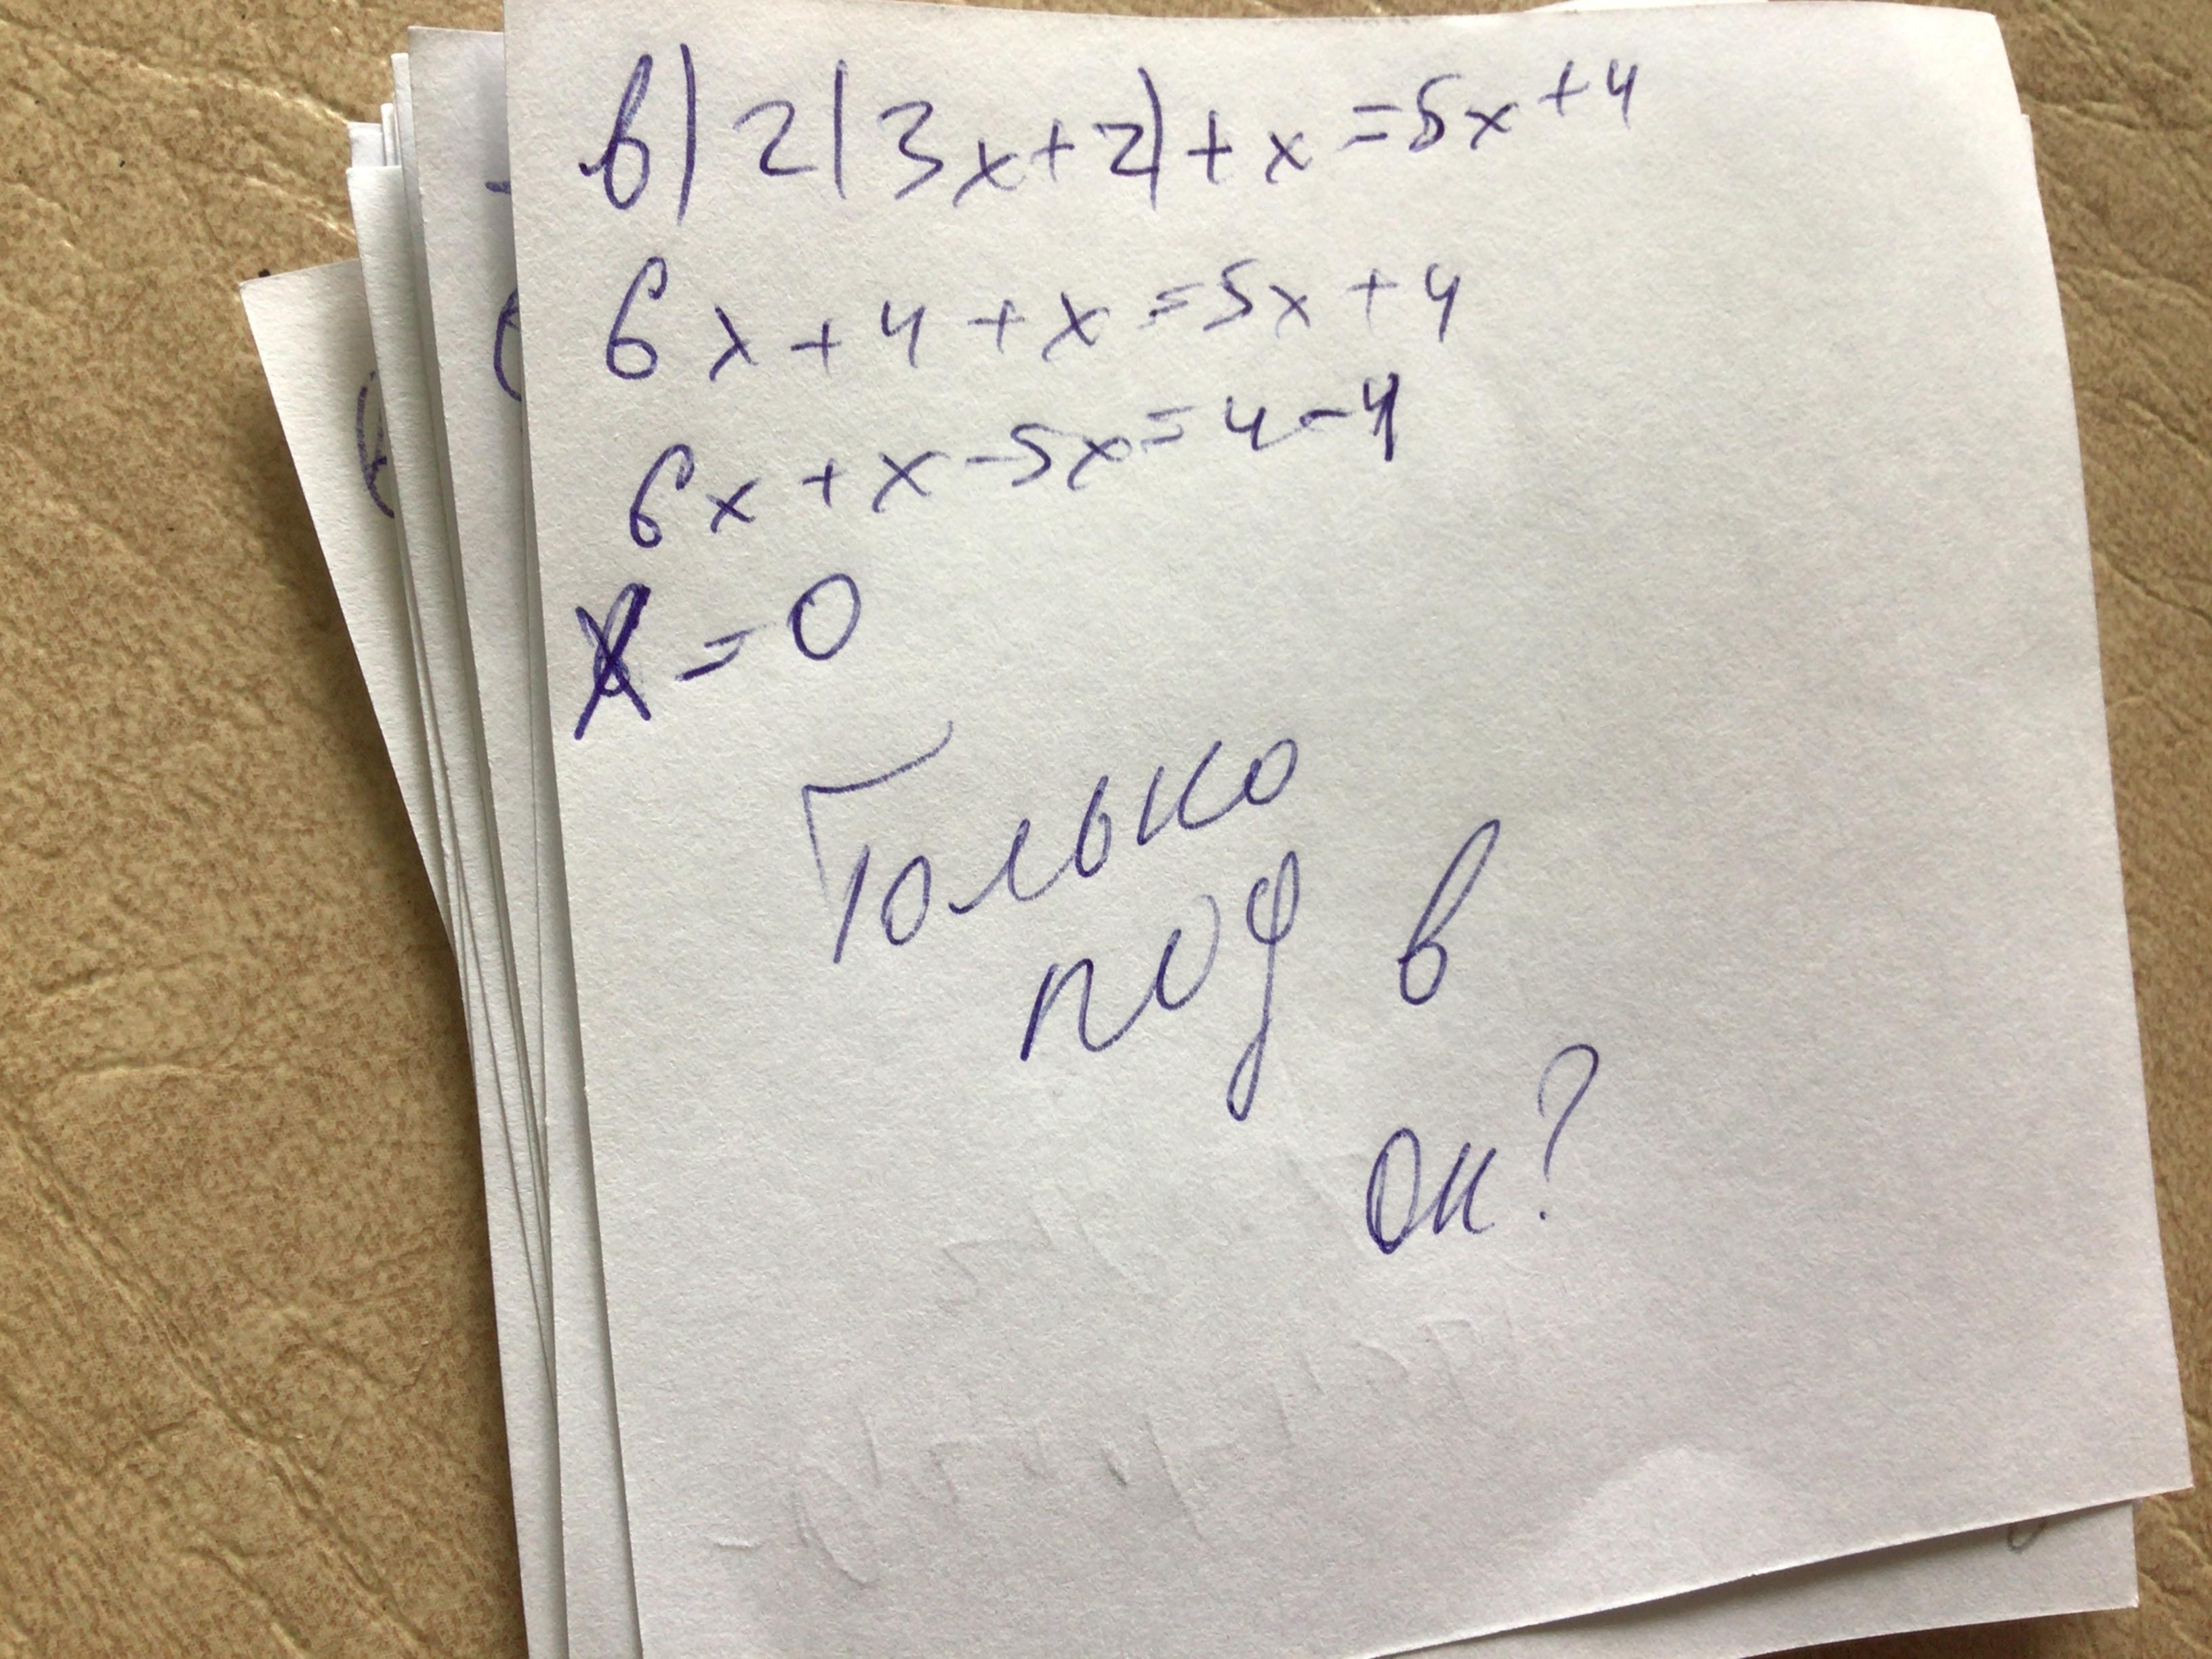 в) 2(3x+2)+x=5x+4
6x+4+x=5x+4
6x+x-5x=4-4
x=0
Только
под в
ок?